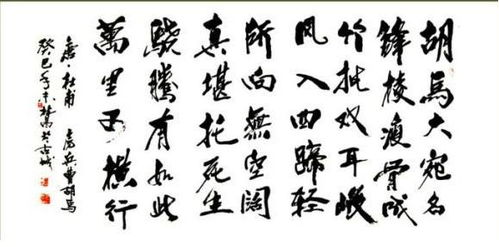 胡馬大宛名
鋒棱瘦骨成
竹批双耳峻
风入四蹄轻
所向無空阔
真堪托死生
驍騰有如此
萬里可橫行
唐 杜甫 房兵曹胡馬
癸巳年 於古城